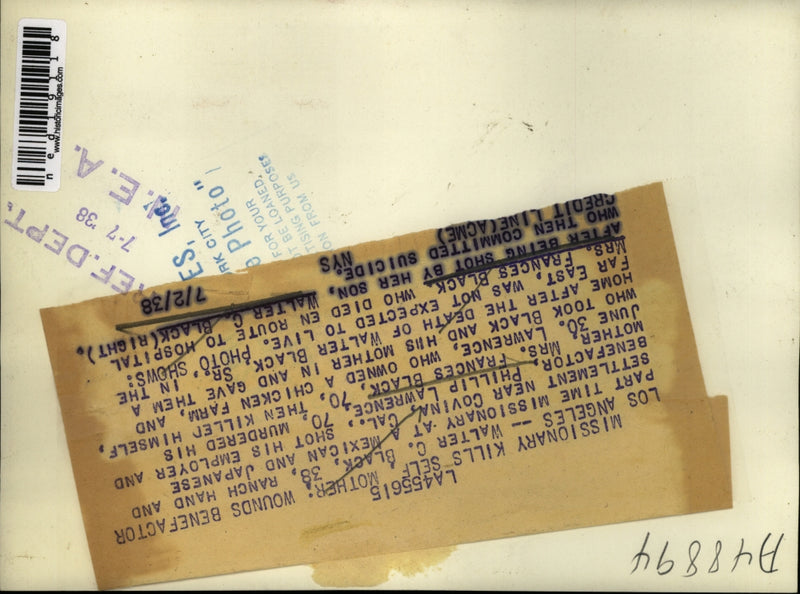 LA455615
MISSIONARY KILLS SELF, MOTHER: WOUNDS BENEFACTOR
LOS ANGELES -- WALTER C. BLACK, 38, RANCH HAND AND
PART TIME MISSIONARY AT A MEXICAN AND JAPANESE
SETTLEMENT NEAR COVINA, CAL., SHOT HIS EMPLOYER AND
BENEFACTOR, PHILLIP LAWRENCE, 70, MURDERED HIS
MOTHER, MRS. FRANCES BLACK, 70, THEN KILLED HIMSELF,
JUNE 30. LAWRENCE, WHO OWNED A CHICKEN FARM, AND
WHO TOOK BLACK AND HIS MOTHER IN AND GAVE THEM A
HOME AFTER THE DEATH OF WALTER BLACK SR. IN THE
FAR EAST, WAS NOT EXPECTED TO LIVE. PHOTO SHOWS:
MRS. FRANCES BLACK WHO DIED EN ROUTE TO HOSPITAL
AFTER BEING SHOT BY HER SON, WALTER C. BLACK(RIGHT),
WHO THEN COMMITTED SUICIDE.
CREDIT LINE(ACME) NYS 7/2/38
A48894
ned19118
www.historicimages.com
N.E.A.
7-7'38
REF. DEPT.
ES, Inc.
RK CITY
Photo"
FOR YOUR
T BE LOANED,
TISING PURPOSES
ON FROM US